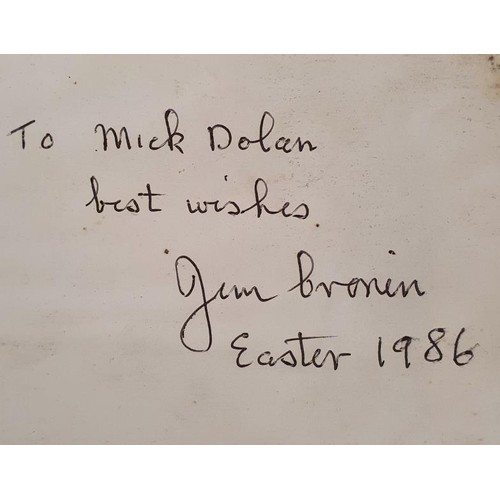 To Mick Dolan
best wishes.
Jim Cronin
Easter 1986